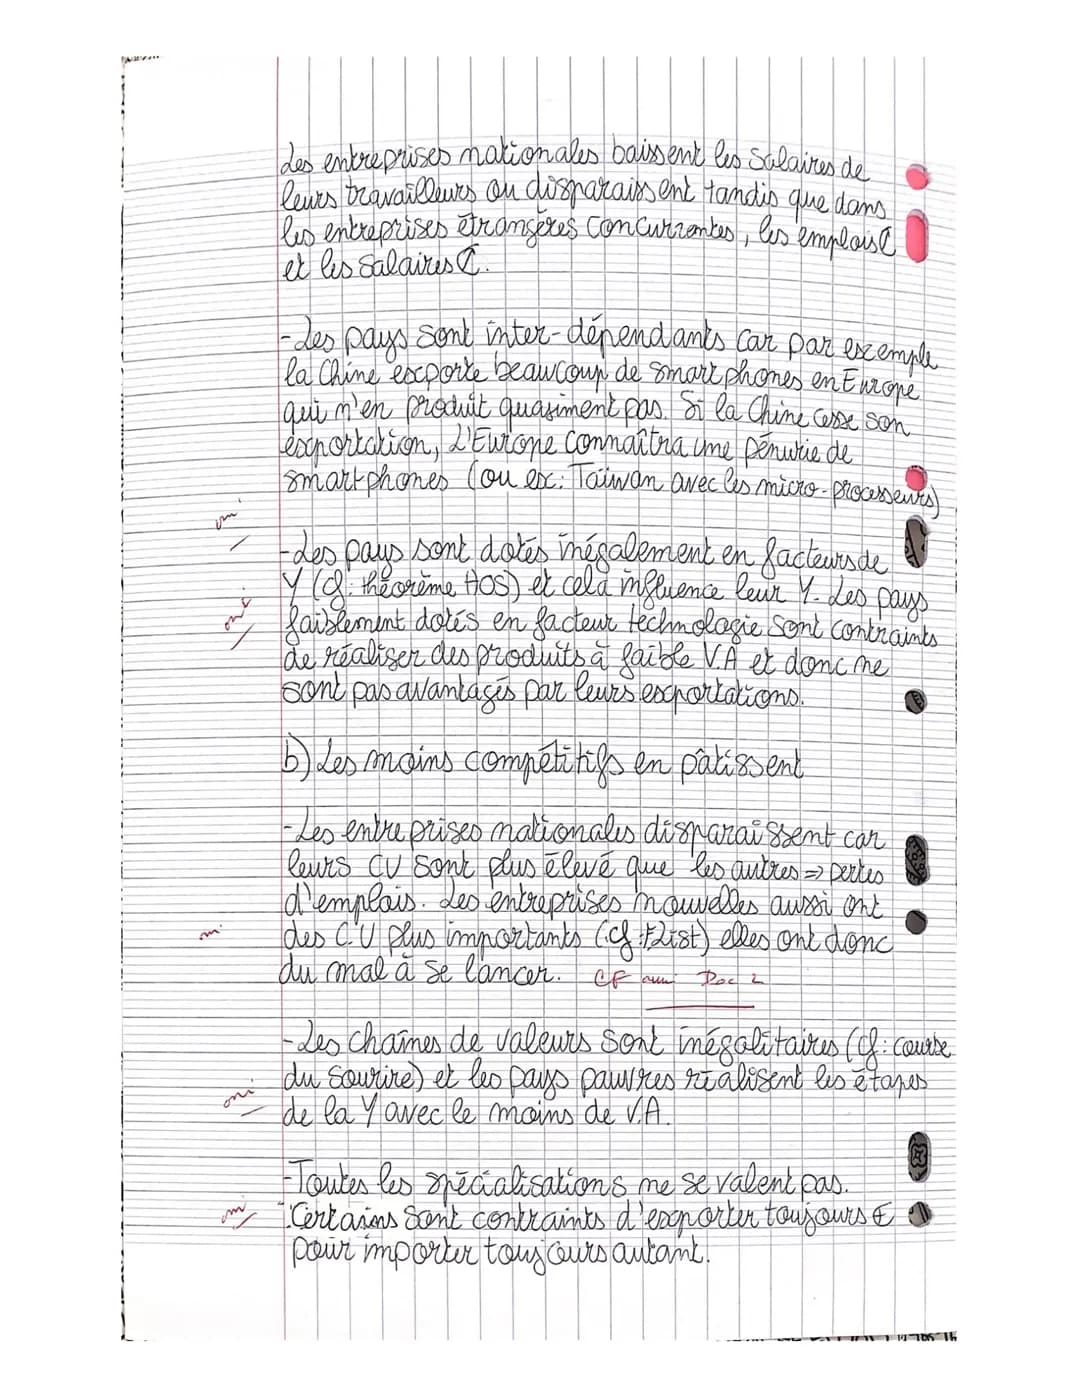 Les entreprises nationales baissent les salaires de
leurs travailleurs ou disparaissent tandis que dans
les entreprises étrangères concurrentes, les emplois
et les salaires
- Les pays sont inter-dépendants car par exemple
la Chine exporte beaucoup de smartphones en Europe
qui n'en produit quasiment pas. Si la Chine cesse son
exportation, L'Europe connaîtra une pénurie de
smartphones (ou ex: Taïwan avec les micro-processeurs)
oui
- Les pays sont dotés inégalement en facteurs de
Y (cf: théorème HOS) et cela influence leur Y. Les pays
oui
faiblement dotés en facteur technologie sont contraints
de réaliser des produits à faible V.A et donc ne
sont pas avantagés par leurs exportations.
b) Les moins compétitifs en pâtissent
- Les entreprises nationales disparaissent car
leurs CU sont plus élevé que les autres => pertes
d'emplois. Les entreprises nouvelles aussi ont
oui
des C.U plus importants (cf: F.List) elles ont donc
du mal à se lancer. CF aussi Doc 2
- Les chaînes de valeurs sont inégalitaires (cf: courbe
du sourire) et les pays pauvres réalisent les étapes
oui
de la Y avec le moins de V.A.
- Toutes les spécialisations ne se valent pas.
oui
Certains sont contraints d'exporter toujours
pour importer toujours autant.